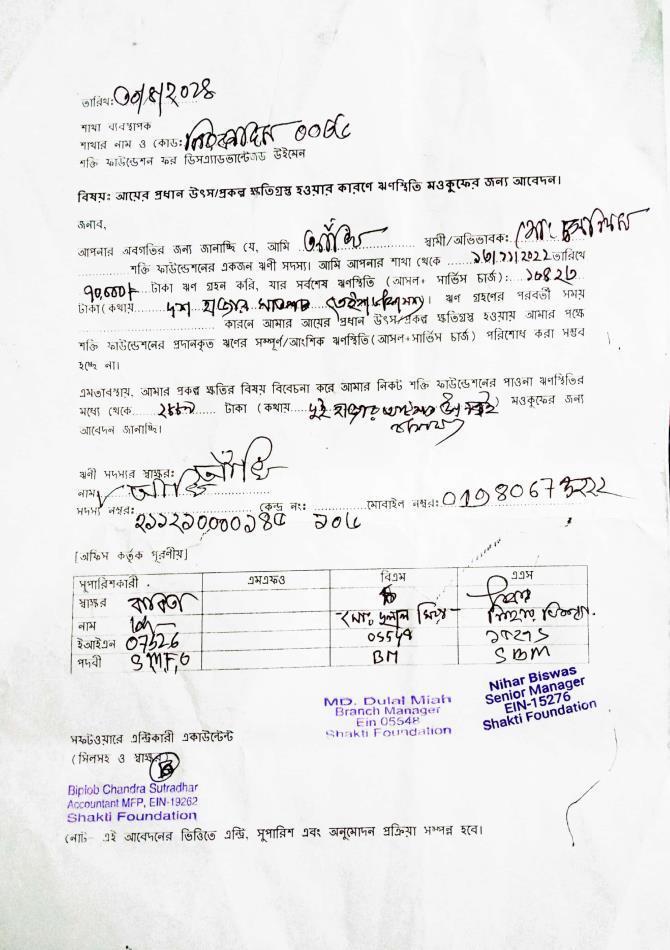 তারিখ:
শাখা ব্যবস্থাপক
শাখার নাম ও কোড:
শক্তি ফাউন্ডেশন ফর ডিসএ্যাডভান্টেজড উইমেন
বিষয়: আয়ের প্রধান উৎস/প্রকল্প ক্ষতিগ্রস্থ হওয়ার কারণে ঋণস্থিতি মওকুফের জন্য আবেদন।
জনাব,
আপনার অবগতির জন্য জানাচ্ছি যে, আমি আঁখি স্বামী/অভিভাবক: মোঃ
শক্তি ফাউন্ডেশনের একজন ঋণী সদস্য। আমি আপনার শাখা থেকে ১৩/১১/2022 তারিখে
৭০,০০০/- টাকা ঋণ গ্রহন করি, যার সর্বশেষ ঋণস্থিতি (আসল+ সার্ভিস চার্জ):
টাকা (কথায় দশ হাজার )। ঋণ গ্রহণের পরবর্তী সময়
কারনে আমার আয়ের প্রধান উৎস/প্রকল্প ক্ষতিগ্রস্থ হওয়ায় আমার পক্ষে
শক্তি ফাউন্ডেশনের প্রদানকৃত ঋণের সম্পূর্ণ/আংশিক ঋণস্থিতি(আসল+সার্ভিস চার্জ) পরিশোধ করা সম্ভব
হচ্ছে না।
এমতাবস্থায়, আমার প্রকল্প ক্ষতির বিষয় বিবেচনা করে আমার নিকট শক্তি ফাউন্ডেশনের পাওনা ঋণস্থিতির
মধ্যে থেকে টাকা (কথায় দুই হাজার মওকুফের জন্য
আবেদন জানাচ্ছি।
ঋণী সদস্যের স্বাক্ষর: আঁখি
নাম আঁখি
সদস্য নম্বর: কেন্দ্র নং: মোবাইল নম্বর:
[অফিস কর্তৃক পূরণীয়]
সুপারিশকারী এমএফও বিএম এএস
স্বাক্ষর কবিতা
নাম মোঃ দুলাল মিয়া নিহার বিশ্বাস
ইআইএন 07526 05548
পদবী SMFO BM SBM
MD. Dulal Miah
Branch Manager
Ein 05548
Shakti Foundation
Nihar Biswas
Senior Manager
EIN-15276
Shakti Foundation
সফটওয়ারে এন্ট্রিকারী একাউন্টেন্ট
(সিলসহ ও স্বাক্ষর)
Biplob Chandra Sutradhar
Accountant MFP, EIN-19262
Shakti Foundation
নোট- এই আবেদনের ভিত্তিতে এন্ট্রি, সুপারিশ এবং অনুমোদন প্রক্রিয়া সম্পন্ন হবে।